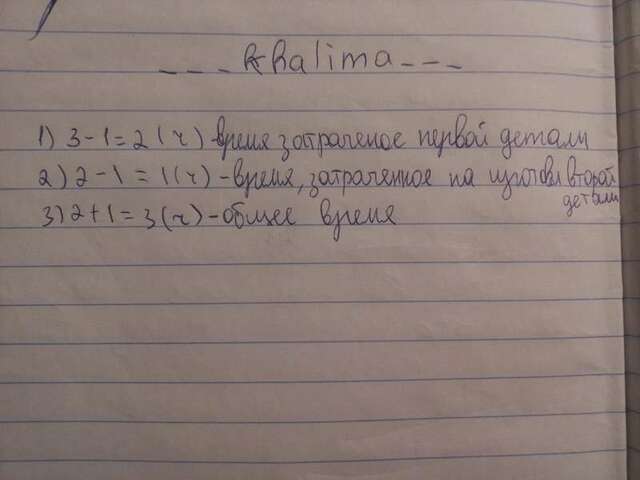 ---Khalima---
1) 3-1=2 (ч)-время затраченое первой детали
2) 2-1=1(ч)-время, затраченное на изготов второй
детали
3) 2+1=3(ч)-общее время